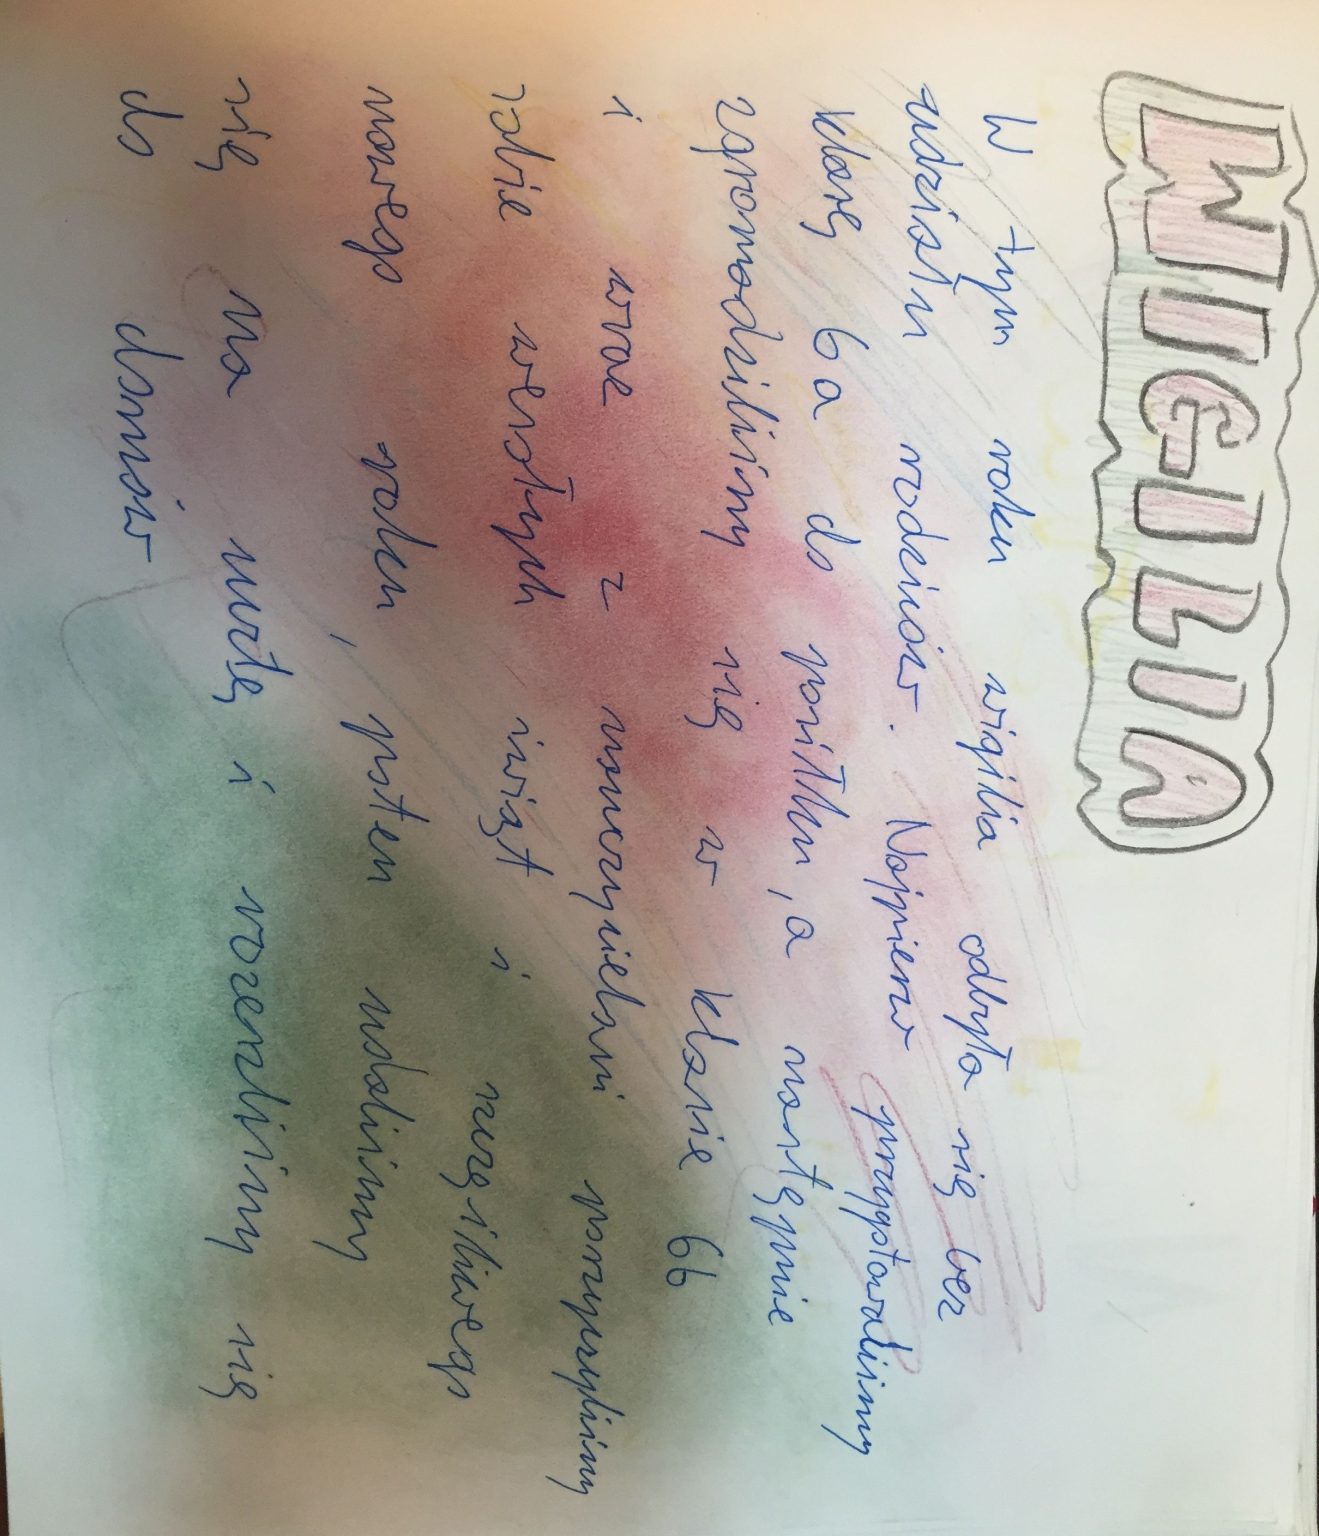 WIGILIA
W tym roku wigilia odbyła się bez
udziału rodziców. Najpierw przygotowaliśmy
klasę 6a do posiłku, a następnie
zgromadziliśmy się w klasie 6b
i wraz z nauczycielami pożyczyliśmy
sobie wesołych świąt i szczęśliwego
nowego roku, potem udaliśmy
się na mszę i rozeszliśmy się
do domów